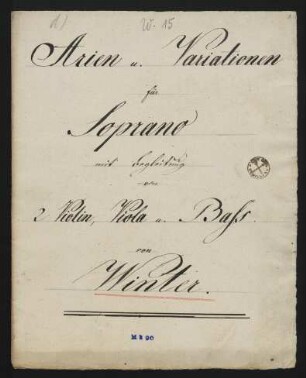 d) W. 15
Arien u. Variationen
für
Soprano
mit Begleitung
von
2 Violin, Viola u. Bass
von
Winter.
M 690